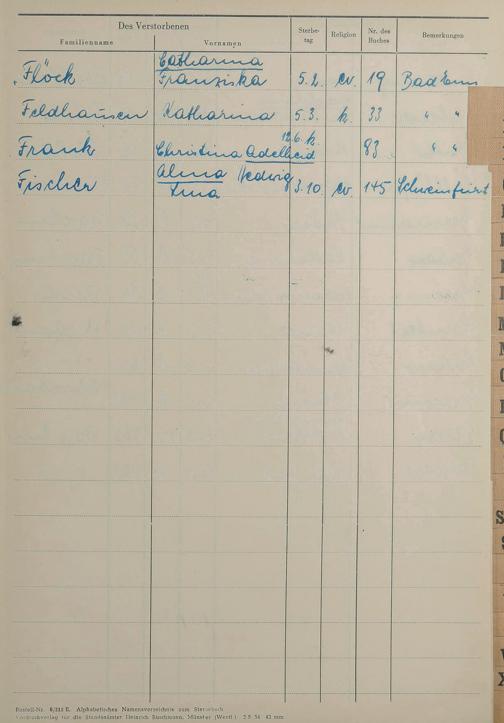 Des Verstorbenen
Familienname Vornamen Sterbe-tag Religion Nr. des Buches Bemerkungen
Catharina
Flöck Franziska 5.2. ev. 19 Bad Ems
Feldhausen Katharina 5.3. k. 33 " "
12.6. k.
Frank Christina Adelheid 83 " "
Alma Hedwig
Fischer Lina 3.10 ev. 145 Schweinfurt
Bestell-Nr. Alphabetisches Namensverzeichnis zum Sterbebuch
Vordruckverlag für die Standesämter Heinrich Buschmann, Münster (Westf.) 2 5 54 42 mm